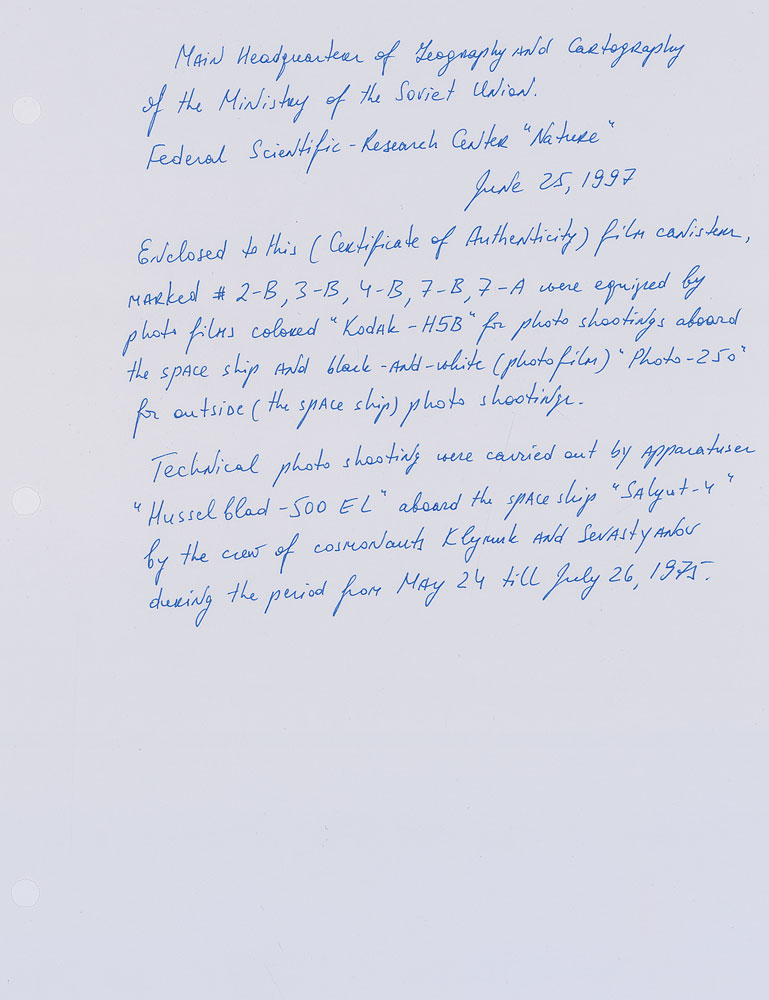 Main Headquarters of Geography and Cartography
of the Ministry of the Soviet Union.
Federal Scientific-Research Center "Nature"
June 25, 1997
Enclosed to this (Certificate of Authenticity) film canisters,
marked # 2-B, 3-B, 4-B, 7-B, 7-A were equiped by
photo films colored "Kodak-H5B" for photo shootings aboard
the space ship and black-and-white (photofilm) "Photo-250"
for outside (the space ship) photo shootings.
Technical photo shooting were carried out by apparatuses
"Husselblad-500 EL" aboard the space ship "Salyut-4"
by the crew of cosmonauts Klymuk and Sevastyanov
during the period from May 24 till July 26, 1975.